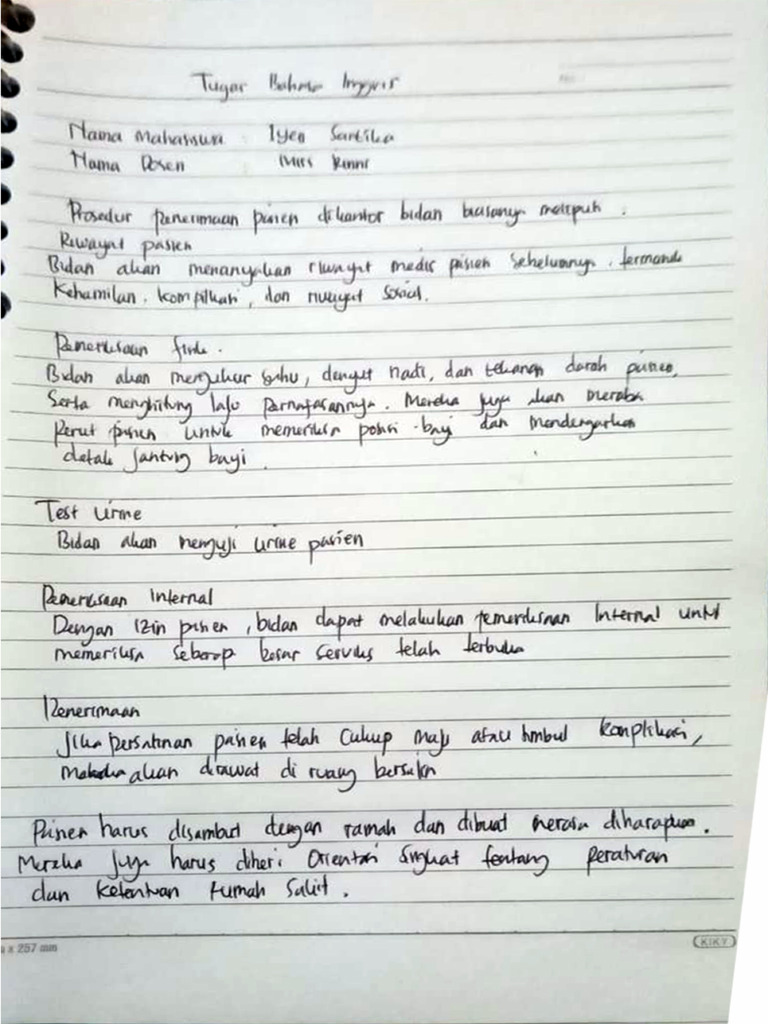 Tugas Bahasa Inggris
Nama Mahasiswa : Iyen Sartika
Nama Dosen Miss Rinni
Prosedur penerimaan pasien dikantor bidan biasanya meliputi .
Riwayat pasien
Bidan akan menanyakan riwayat medis pasien sebelumnya . termasuk
Kehamilan . komplikasi , dan riwayat sosial.
Pemeriksaan fisik .
Bidan akan mengukur suhu, denyut nadi, dan tekanan darah pasien,
Serta menghitung laju pernafasannya. Mereka juga akan meraba
Perut pasien untuk memeriksa posisi bayi dan mendengarkan
detak jantung bayi .
Test Urine
Bidan akan menguji urine pasien
Pemeriksaan Internal
Dengan izin pasien , bidan dapat melakukan pemeriksaan Internal untuk
memeriksa seberap besar serviks telah terbuka
Penerimaan
Jika persalinan pasien telah cukup maju atau timbul komplikasi,
akan dirawat di ruang bersalin
Pasien harus disambut dengan ramah dan dibuat merasa diharapkan .
Mereka juga harus diberi Orientasi Singkat tentang peraturan
dan ketentuan rumah sakit .
x 257 mm
KIKY